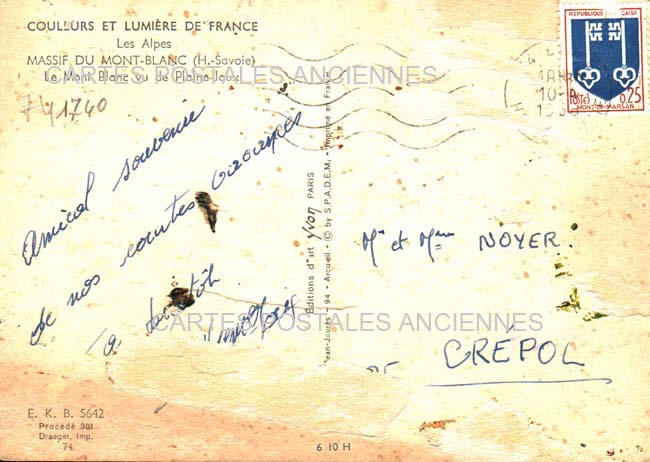 COULLURS ET LUMIÈRE DE FRANCE
Les Alpes
MASSIF DU MONT-BLANC (H.-Savoie)
Le Mont Blanc vu de Plaine-Joux
CARTES POSTALES ANCIENNES
1740
Amical souvenir
de nos courtes vacances
à bientôt
Mr et Mme NOYER.
CRÉPOL
CARTES POSTALES ANCIENNES
Editions d'art Yvon PARIS
Jean-Jaurès - 94 - Arcueil - © by S.P.A.D.E.M. - Imprimé en France
REPUBLIQUE FRANÇAISE
Postes 0,25
MONT-DE-MARSAN
E. K. B. 5642
Procédé 301
Draeger, Imp.
74
6 10 H